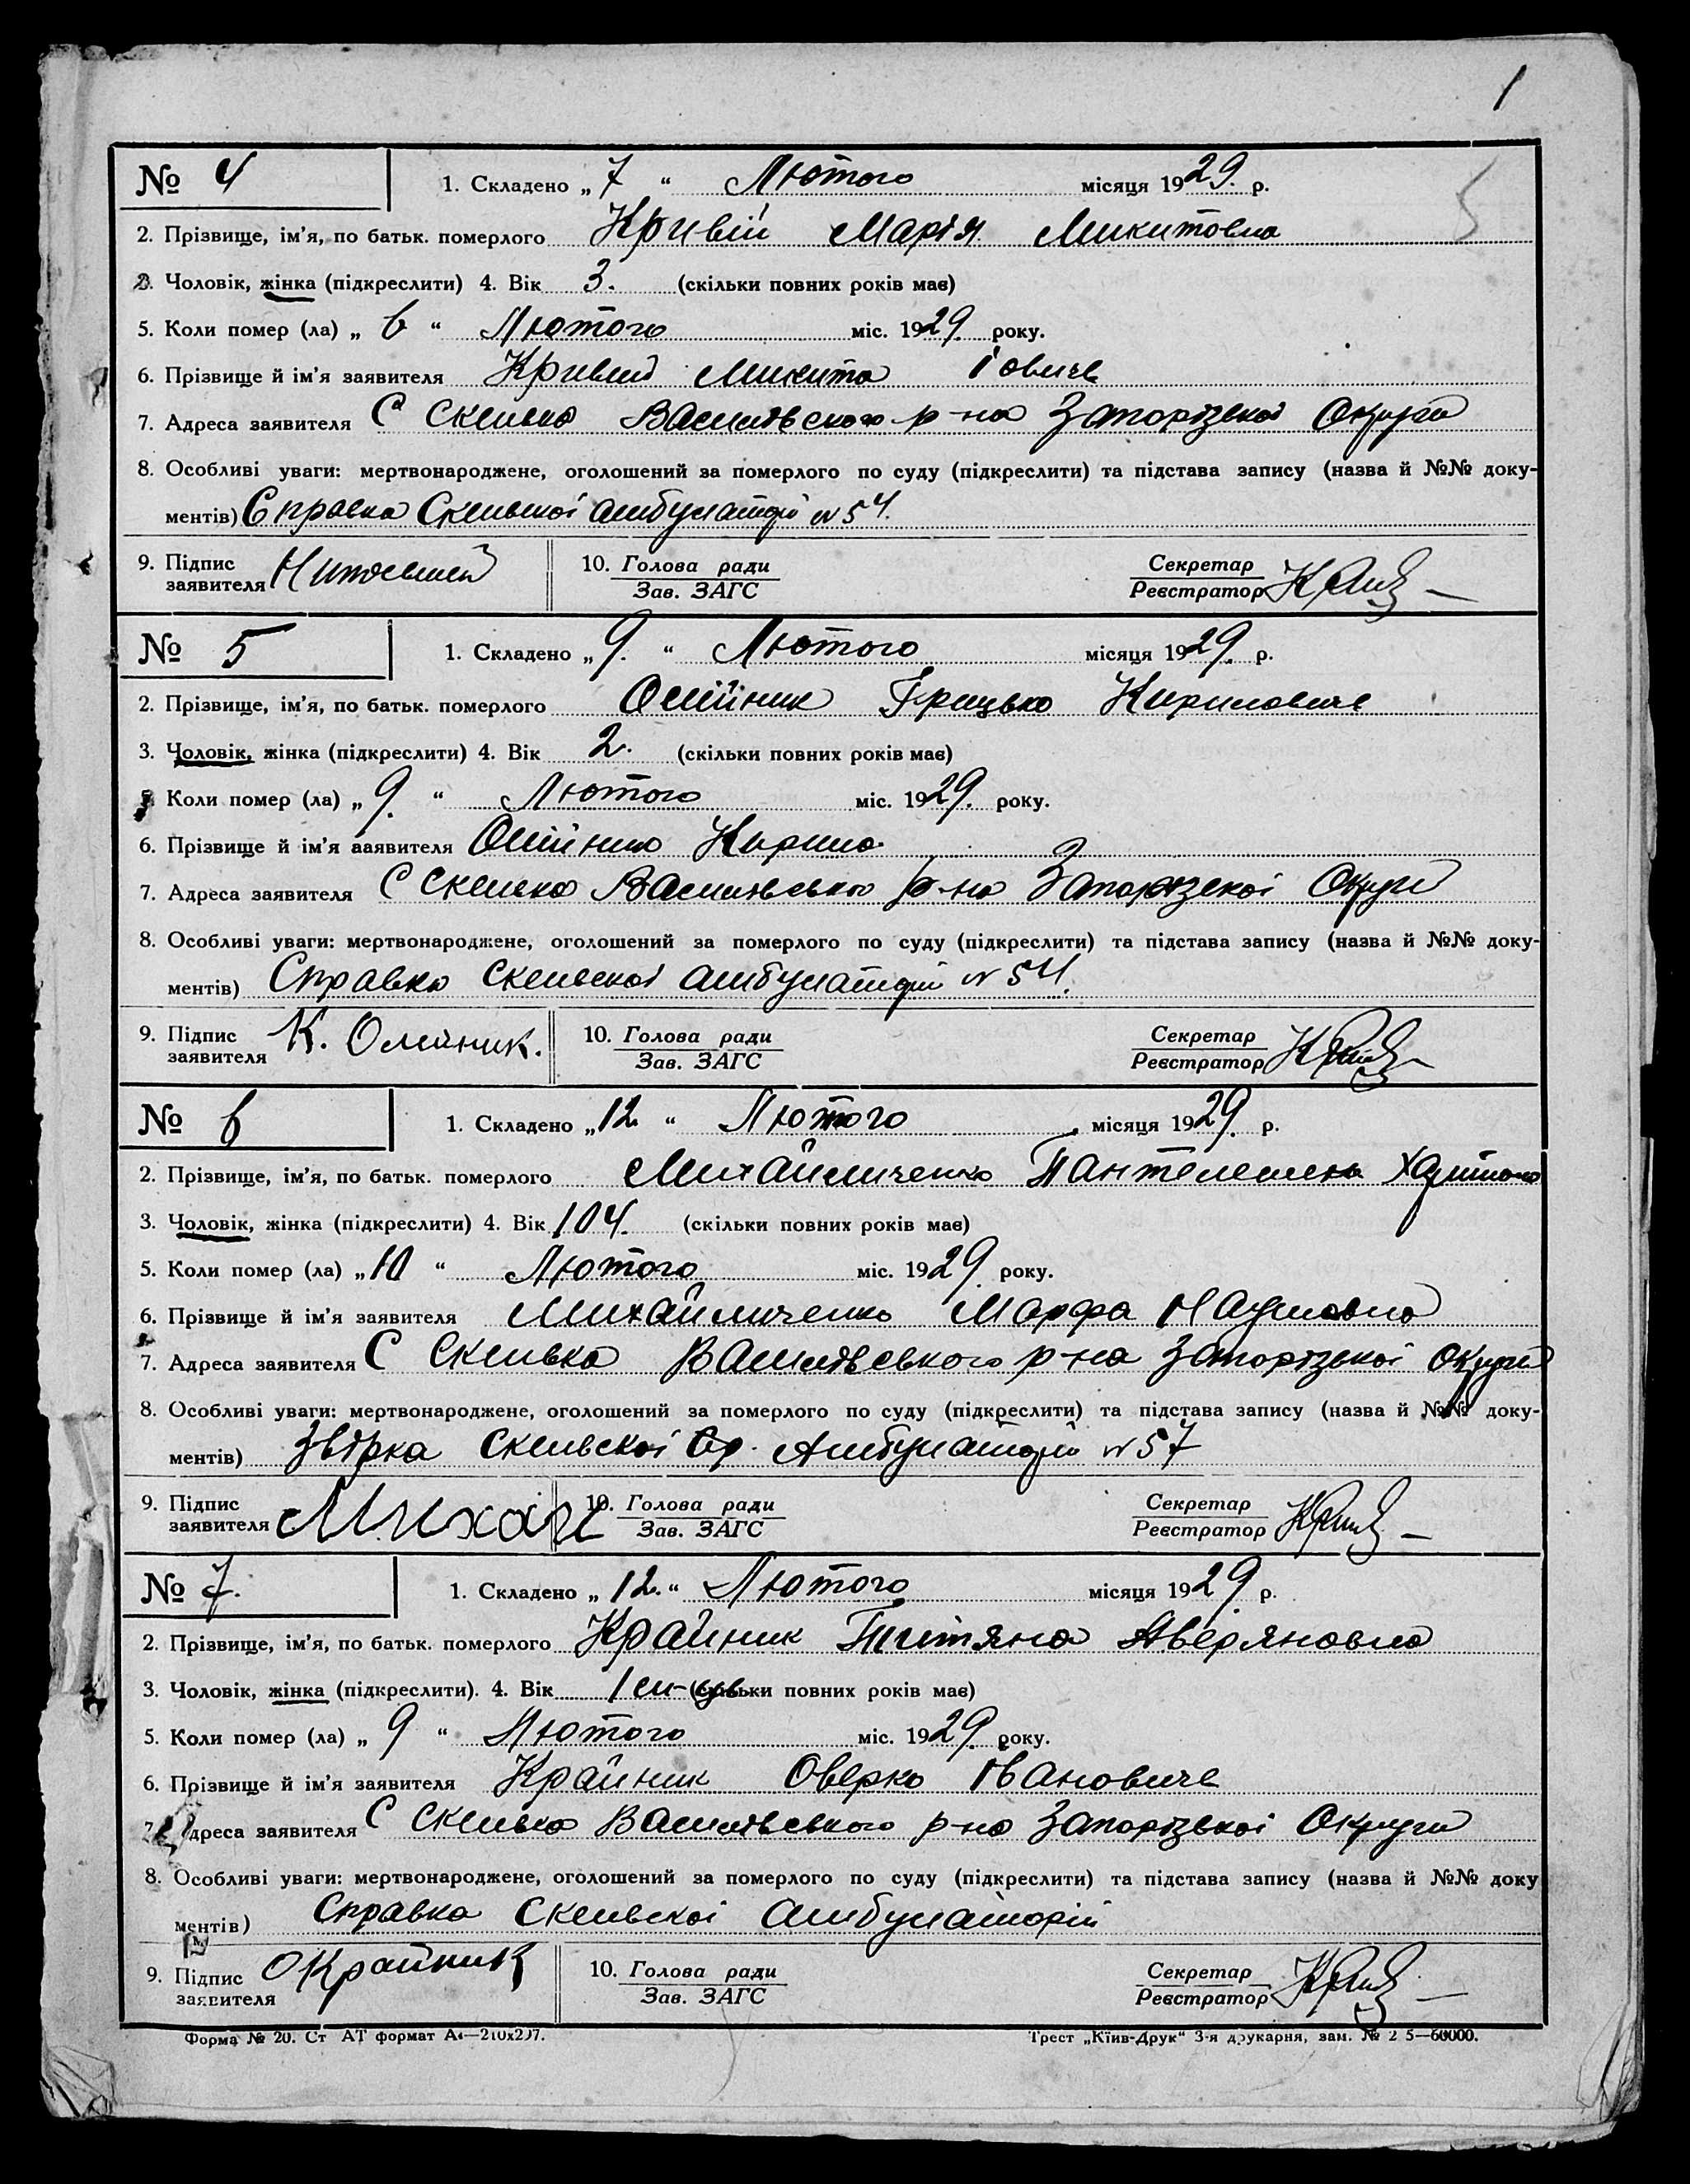 1
№ 4 1. Складено „ 7 “ Лютого місяця 1929. р.
5
2. Прізвище, ім’я, по батьк. померлого Кривій Марія Микитовна
3. Чоловік, жінка (підкреслити) 4. Вік 3. (скільки повних років має)
5. Коли помер (ла) „ 6 “ Лютого міс. 1929. року.
6. Прізвище й ім’я заявителя Кривий Микита
7. Адреса заявителя С Скелька Василівського р-на Запорізської Округи
8. Особливі уваги: мертвонароджене, оголошений за померлого по суду (підкреслити) та підстава запису (назва й №№ доку-
ментів) Справка Скельської амбулаторії № 54.
9. Підпис заявителя 10. Голова ради Секретар
Зав. ЗАГС Реєстратор
№ 5 1. Складено „ 9. “ Лютого місяця 1929. р.
2. Прізвище, ім’я, по батьк. померлого Олійник Грицько Кирилович
3. Чоловік, жінка (підкреслити) 4. Вік 2. (скільки повних років має)
5. Коли помер (ла) „ 9. “ Лютого міс. 1929. року.
6. Прізвище й ім’я заявителя Олійник Кирило
7. Адреса заявителя С Скелька Василівського р-на Запорізської Округи
8. Особливі уваги: мертвонароджене, оголошений за померлого по суду (підкреслити) та підстава запису (назва й №№ доку-
ментів) Справка Скельської амбулаторії № 54.
9. Підпис заявителя К. Олейник. 10. Голова ради Секретар
Зав. ЗАГС Реєстратор
№ 6 1. Складено „ 12 “ Лютого місяця 1929. р.
2. Прізвище, ім’я, по батьк. померлого Михайличенко Пантелемон
3. Чоловік, жінка (підкреслити) 4. Вік 104. (скільки повних років має)
5. Коли помер (ла) „ 10 “ Лютого міс. 1929. року.
6. Прізвище й ім’я заявителя Михайличенко Марфа Наумовна
7. Адреса заявителя С Скелька Василівського р-на Запорізської Округи
8. Особливі уваги: мертвонароджене, оголошений за померлого по суду (підкреслити) та підстава запису (назва й №№ доку-
ментів) Звірка Скельської Амбулаторії № 57
9. Підпис заявителя Михай 10. Голова ради Секретар
Зав. ЗАГС Реєстратор
№ 7. 1. Складено „ 12. “ Лютого місяця 1929 р.
2. Прізвище, ім’я, по батьк. померлого Крайник Титяна Аверяновна
3. Чоловік, жінка (підкреслити). 4. Вік 1 м-ць (скільки повних років має)
5. Коли помер (ла) „ 9 “ Лютого міс. 1929. року.
6. Прізвище й ім’я заявителя Крайник Оверко Іванович
7. Адреса заявителя С Скелька Василівського р-на Запорізської Округи
8. Особливі уваги: мертвонароджене, оголошений за померлого по суду (підкреслити) та підстава запису (назва й №№ доку
ментів) Справка Скельської Амбулаторії
9. Підпис заявителя О Крайник 10. Голова ради Секретар
Зав. ЗАГС Реєстратор
Форма № 20. Ст АТ формат А4—210х297. Трест „Київ-Друк“ 3-я друкарня, зам. № 2 5—60000.